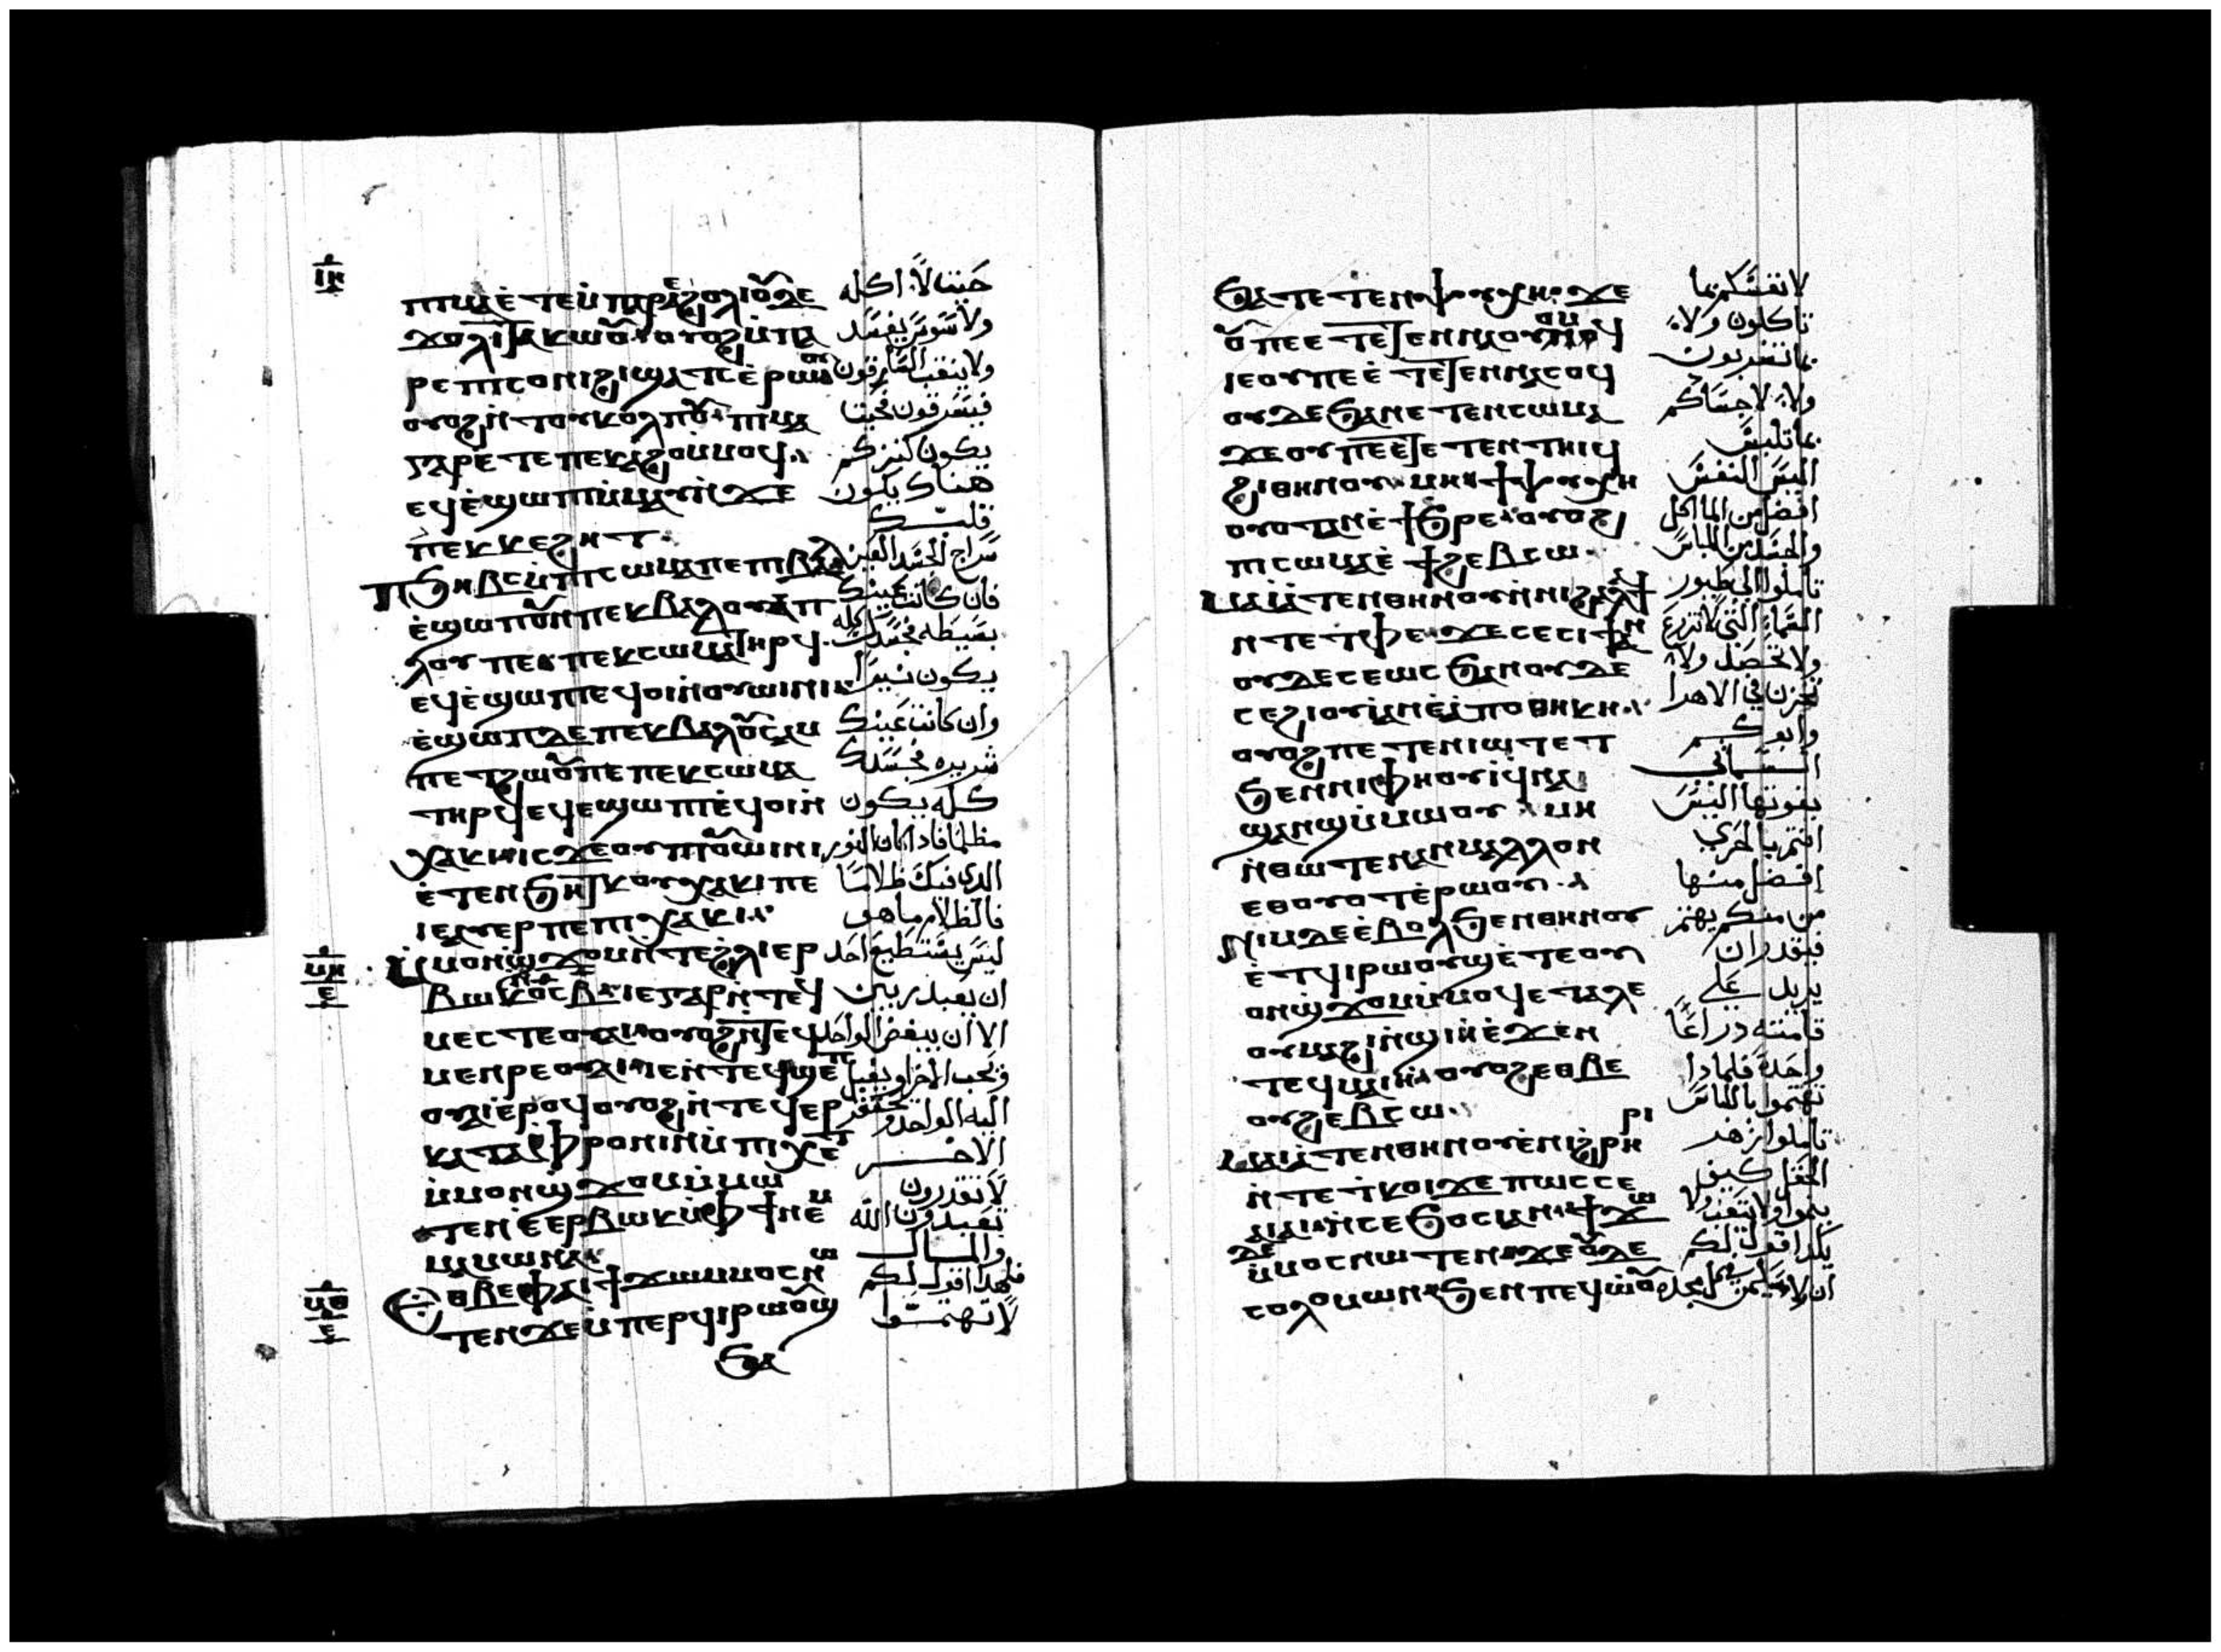 ⲓⲏ
ⲡⲓⲙⲁ ⲉ̀ⲧⲉ ⲙ̀ⲡⲁⲣⲉϩⲟⲗⲓ ⲟⲩⲇⲉ
ϫⲟⲗⲓ ⲧⲁⲕⲱⲟⲩ ⲟⲩⲟϩ ⲙ̀ⲡⲁ
ⲣⲉ ⲛⲓⲥⲟⲛⲓ ϩⲓ ϣⲁⲧⲥ ⲉ̀ⲣⲱⲟⲩ
ⲟⲩⲟϩ ⲛ̀ⲧⲟⲩⲕⲟⲗⲡⲟⲩ ⲡⲓⲙⲁ
ⲅⲁⲣ ⲉ̀ⲧⲉ ⲡⲉⲕⲁϩⲟ ⲙ̀ⲙⲟϥ
ⲉϥⲉ̀ϣⲱⲡⲓ ⲙ̀ⲙⲁⲩ ⲛ̀ϫⲉ
ⲡⲉⲕⲕⲉϩⲏⲧ
ⲡϧⲏⲃⲥ ⲙ̀ⲡⲓⲥⲱⲙⲁ ⲡⲉ ⲡⲓⲃⲁⲗ
ⲉ̀ϣⲱⲡ ⲟⲩⲛ ⲡⲉⲕⲃⲁⲗ ⲟⲩϩⲁⲡ
ⲗⲟⲩⲥ ⲡⲉ ⲡⲉⲕⲥⲱⲙⲁ ⲧⲏⲣϥ
ⲉϥⲉ̀ϣⲱⲡⲓ ⲉϥⲟⲓ ⲛ̀ⲟⲩⲱⲓⲛⲓ
ⲉ̀ϣⲱⲡ ⲇⲉ ⲡⲉⲕⲃⲁⲗ ⲟⲩⲥⲁⲙ
ⲡⲉⲧϩⲱⲟⲩ ⲡⲉ ⲡⲉⲕⲥⲱⲙⲁ
ⲧⲏⲣϥ ⲉϥⲉϣⲱⲡⲓ ⲉϥⲟⲓ ⲛ̀
ⲭⲁⲕⲓ ⲓⲥϫⲉ ⲟⲩⲛ ⲡⲓⲟⲩⲱⲓⲛⲓ
ⲉ̀ⲧⲉⲛϧⲏⲧⲕ ⲟⲩⲭⲁⲕⲓ ⲡⲉ
ⲓⲉ ⲁⲩⲏⲣ ⲡⲉ ⲡⲓⲭⲁⲕⲓ
ⲙⲏ
ⲉ
ⲙ̀ⲙⲟⲛ ϣϫⲟⲙ ⲛ̀ⲧⲉ ϩⲗⲓ ⲉⲣ
ⲃⲱⲕ ⲛ̀ⲟ̅ⲥ̅ ⲃ̅ ⲓⲉ ⲅⲁⲣ ⲛ̀ⲧⲉϥ
ⲙⲉⲥⲧⲉ ⲟⲩⲁⲓ ⲟⲩⲟϩ ⲛ̀ⲧⲉϥ
ⲙⲉⲛⲣⲉ ⲟⲩⲁⲓ ⲓⲉ ⲛ̀ⲧⲉϥϣⲉⲡ
ⲟⲩⲁⲓ ⲉ̀ⲣⲟϥ ⲟⲩⲟϩ ⲛ̀ⲧⲉϥⲉⲣ
ⲕⲁⲧⲁⲫⲣⲟⲛⲓⲛ ⲙ̀ⲡⲓⲭⲉⲧ
ⲙ̀ⲙⲟⲛ ϣϫⲟⲙ ⲙ̀ⲙⲱ
ⲧⲉⲛ ⲉ̀ⲉⲣⲃⲱⲕ ⲙ̀ⲫϯ ⲛⲉⲙ
ⲙⲁⲙⲱⲛⲁ
ⲙⲑ
ⲉ
ⲉⲑⲃⲉ ⲫⲁⲓ ϯϫⲱ ⲙ̀ⲙⲟⲥ ⲛⲱ
ⲧⲉⲛ ϫⲉ ⲙ̀ⲡⲉⲣϥⲓⲣⲱⲟⲩϣ
ϧⲁ
حيث لا اكله
ولا سوس يفسد
ولا ينقب السارقون
فيسرقون فحيث
يكون كنزكم
هناك يكون
قلبك
سراج الجسد العين
فان كانت عينك
بسيطه فجسدك كله
يكون نيرا
وان كانت عينك
شريره فجسدك
كله يكون
مظلما فاذا كان النور
الدي فيك ظلاما
فالظلام ما هو
ليس يستطيع احد
ان يعبد ربين
الا ان يبغض الواحد
ويحب الاخر او يقبل
اليه الواحد ويحتقر
الاخر
لا تقدرون
تعبدون الله
والمال
فلهدا اقول لكم
لا تهتموا
ϧⲁ ⲧⲉⲧⲉⲛⲯⲩⲭⲏ ϫⲉ
ⲟⲩ ⲡⲉ ⲉ̀ⲧⲉⲧⲉⲛⲛⲁⲟⲩⲟⲙϥ
ⲓⲉ ⲟⲩ ⲡⲉ ⲉ̀ⲧⲉⲧⲉⲛⲛⲁⲥⲟϥ
ⲟⲩⲇⲉ ϧⲁ ⲡⲉⲧⲉⲛⲥⲱⲙⲁ
ϫⲉ ⲟⲩ ⲡⲉⲧⲉⲧⲉⲛⲛⲁⲧⲏⲓϥ
ϩⲓⲑⲏⲛⲟⲩ ⲙⲏ ϯⲯⲩⲭⲏ
ⲟⲩⲟⲧ ⲁⲛ ⲉ̀ϯϧⲣⲉ ⲟⲩⲟϩ
ⲡⲓⲥⲱⲙⲁ ⲉ̀ϯϩⲉⲃⲥⲱ
ⲙⲁⲓⲁⲧⲉⲛⲑⲏⲛⲟⲩ ⲛ̀ⲛⲓϩⲁⲗⲁϯ
ⲛⲧⲉ ⲧⲫⲉ ϫⲉ ⲥⲉⲥⲓϯ ⲁⲛ
ⲟⲩⲇⲉ ⲥⲉⲱⲥϧ ⲁⲛ ⲟⲩⲇⲉ
ⲥⲉϩⲓⲟⲩⲓ ⲁⲛ ⲉ̀ⲁⲡⲟⲑⲏⲕⲏ
ⲟⲩⲟϩ ⲡⲉⲧⲉⲛⲓⲱⲧ ⲉⲧ
ϧⲉⲛ ⲛⲓⲫⲏⲟⲩⲓ ϥⲛⲁ
ϣⲁⲛϣ ⲙ̀ⲙⲱⲟⲩ ⲙⲏ
ⲛ̀ⲑⲱⲧⲉⲛ ⲁⲛ ⲙⲁⲗⲗⲟⲛ
ⲉⲑⲟⲩⲟⲧ ⲉ̀ⲣⲱⲟⲩ
ⲛⲓⲙ ⲇⲉ ⲉ̀ⲃⲟⲗ ϧⲉⲛ ⲑⲏⲛⲟⲩ
ⲉ̀ⲧϥⲓⲣⲱⲟⲩϣ ⲉ̀ⲧⲉ ⲟⲩ
ⲟⲛ ϣϫⲟⲙ ⲙ̀ⲙⲟϥ ⲉ̀ⲧⲁⲗⲉ
ⲟⲩⲙⲁϩⲓ ⲛ̀ϣⲓⲏ ⲉ̀ϫⲉⲛ
ⲧⲉϥⲙⲁⲓⲏ ⲟⲩⲟϩ ⲉⲑⲃⲉ
ⲟⲩϩⲉⲃⲥⲱ
ⲙⲁⲓⲁⲧⲉⲛⲑⲏⲛⲟⲩ ⲉ̀ⲛⲓϩⲣⲏⲣⲓ
ⲛ̀ⲧⲉ ⲧⲕⲟⲓ ϫⲉ ⲡⲱⲥ ⲥⲉ
ⲁⲓⲁⲓ ⲛ̀ⲥⲉϧⲟⲥⲓ ⲁⲛ ϯϫⲱ
ⲇⲉ ⲙ̀ⲙⲟⲥ ⲛⲱⲧⲉⲛ ϫⲉ ⲟⲩⲇⲉ
ⲥⲟⲗⲟⲙⲱⲛ ϧⲉⲛ ⲡⲉϥⲱ̀ⲟⲩ
لانفسكم بما
تاكلون ولا
بما تشربون
ولا لاجسادكم
بما تلبس
اليس النفس
افضل من الماكل
والجسد من اللباس
تاملوا الى طيور
السماء التي لا تزرع
ولا تحصد ولا
تخزن في الاهرا
وابوكم
السماني
يقوتها اليس
انتم بالحري
افضل منها
من منكم يهتم
فيقدر ان
يزيد على
قامته دراعا
واحدة فلمادا
تهتموا باللباس
تاملوا زهر
الحقل كيف
ينموا ولا يتعب ولا
يكد اقول لكم
ان ولا سليمن في كل مجده